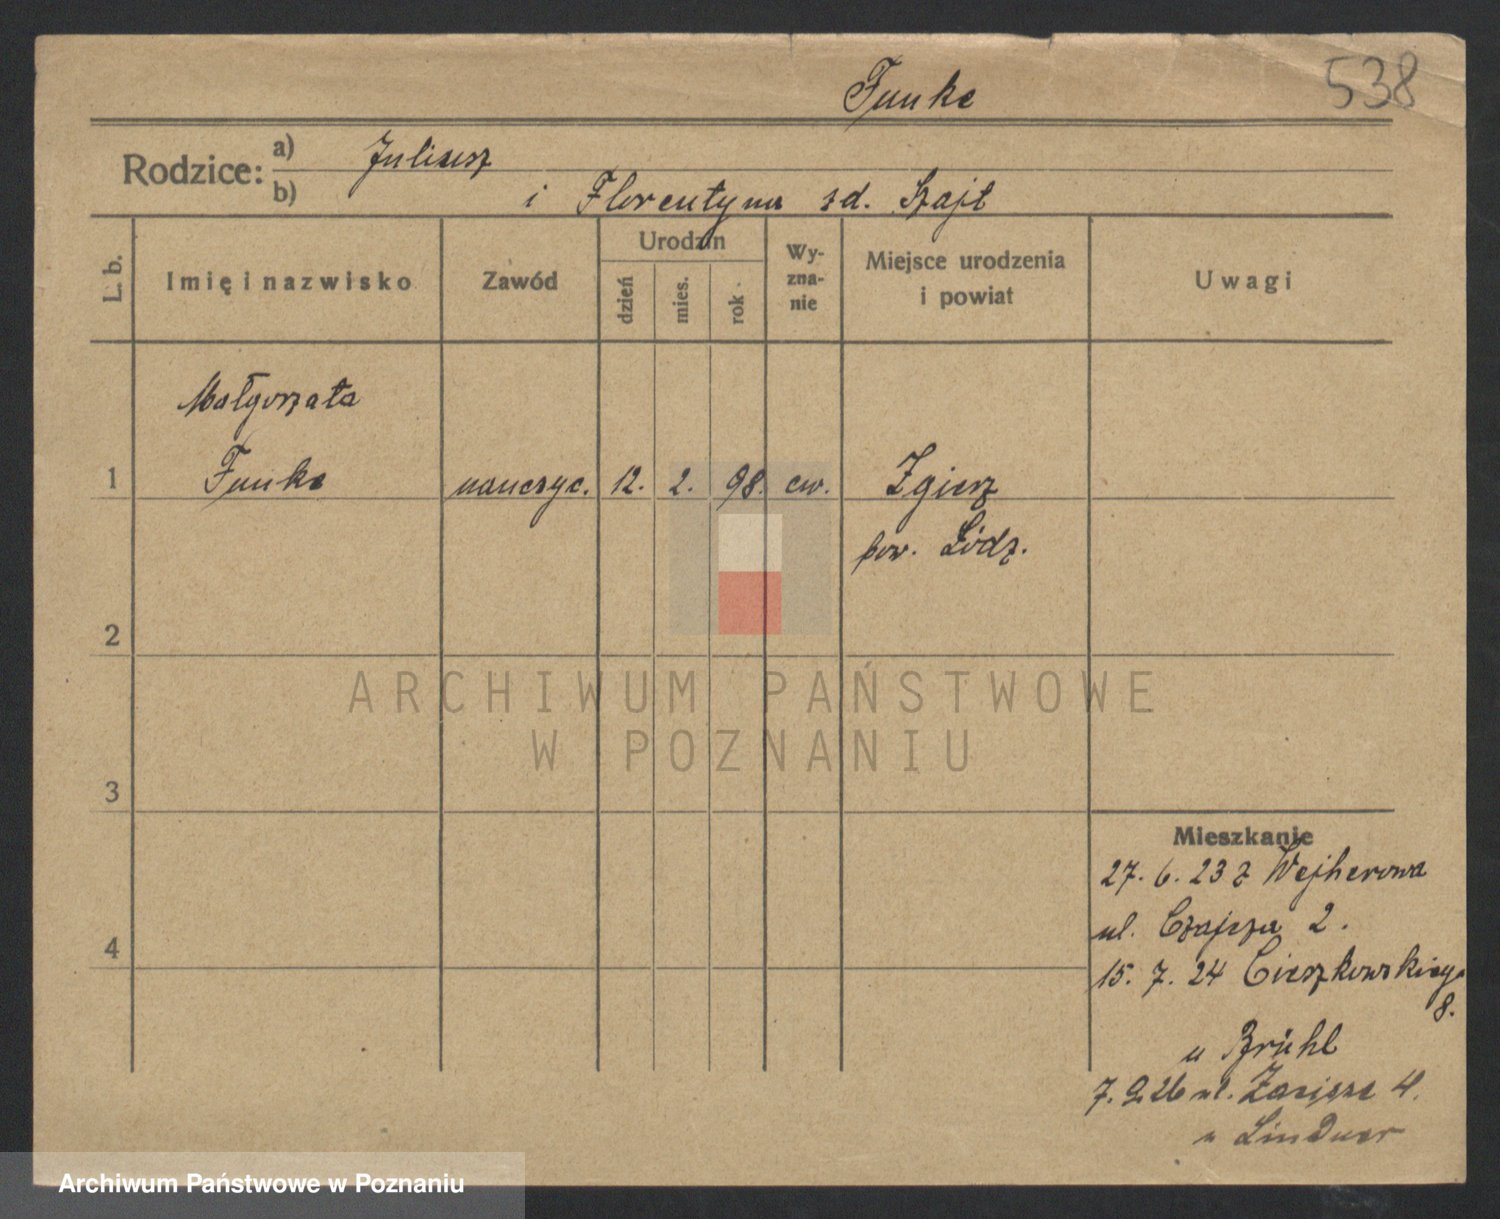 Funke
538
Rodzice: a) Juliusz
b) i Florentyna zd. Szajt
L. b.
Imię i nazwisko
Zawód
Urodzin
dzień
mies.
rok
Wy-
zna-
nie
Miejsce urodzenia
i powiat
Uwagi
Małgorzata
1 Funke nauczyc. 12. 2. 98. ew. Zgierz
pow. Łódz.
2
ARCHIWUM PAŃSTWOWE
W POZNANIU
3
Mieszkanie
27. 6. 23 z Wejherowa
ul. Czajcza 2.
4
15. 7. 24 Cieszkowskiego
8.
u Brühl
7. 9. 26 ul. Zacisze 4.
u Lindner
Archiwum Państwowe w Poznaniu